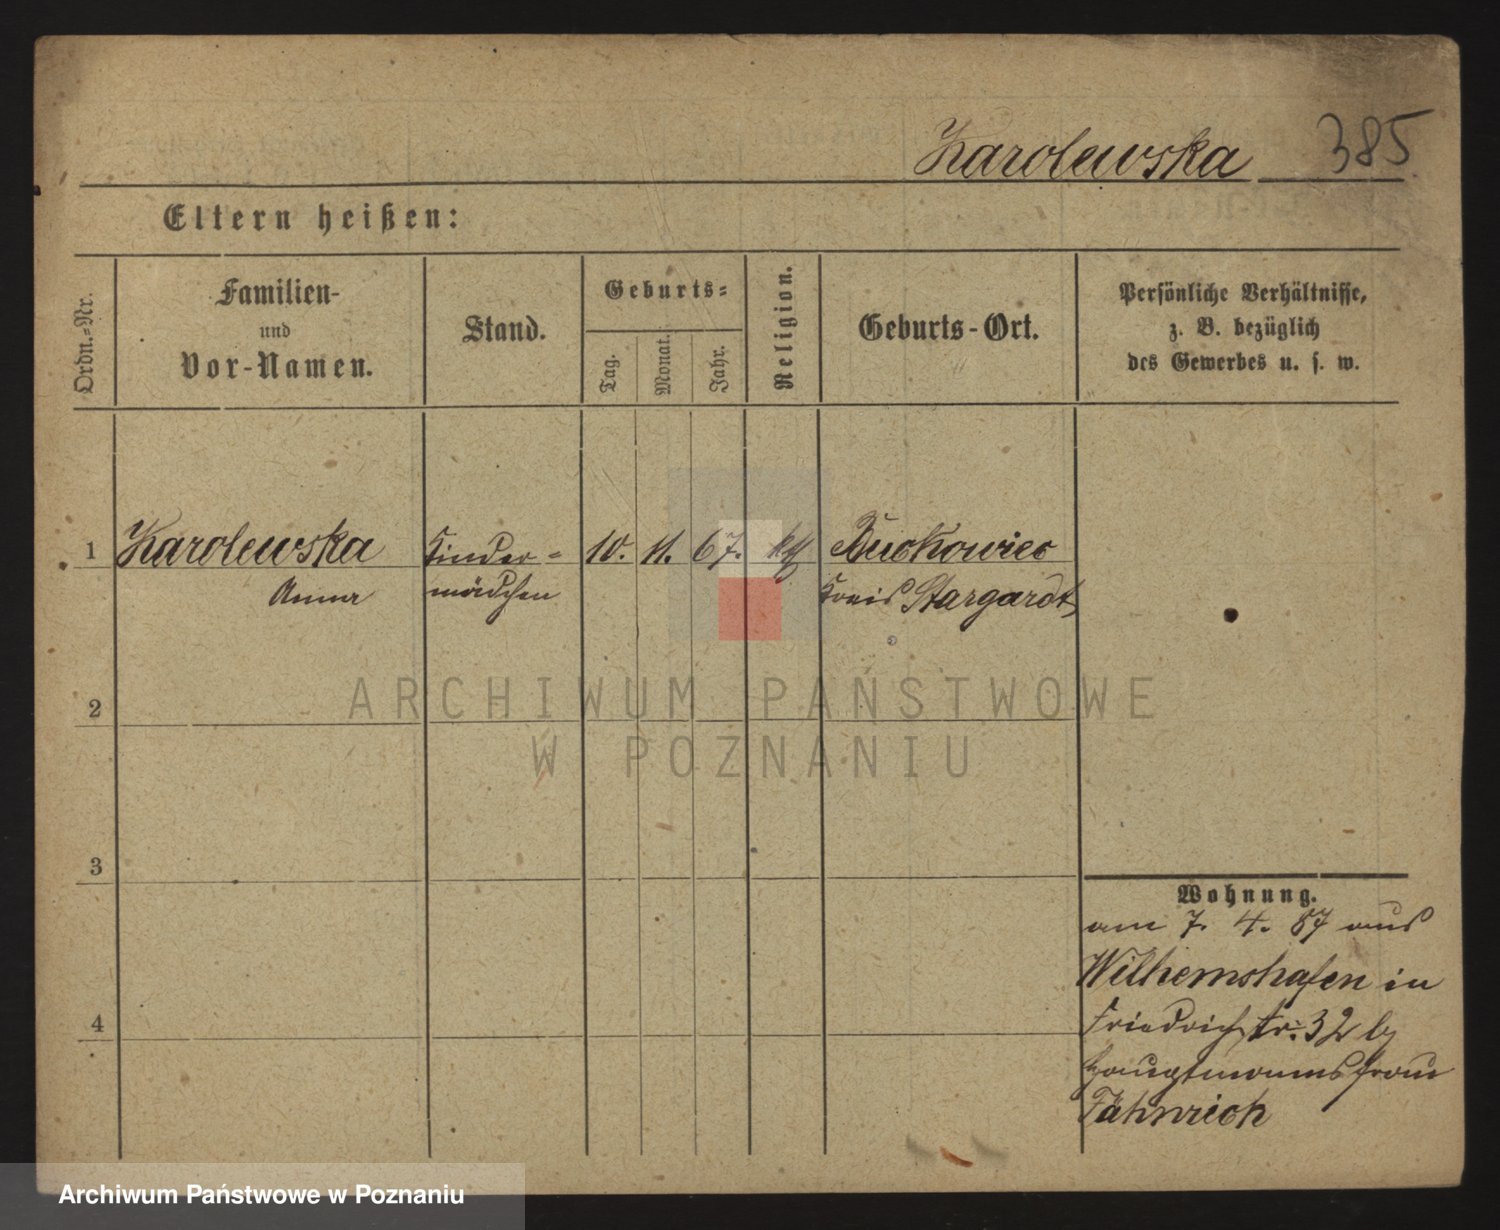 Karolewska 385
Eltern heißen:
Ordn.-Nr.
Familien-
und
Vor-Namen.
Stand.
Geburts-
Tag.
Monat.
Jahr.
Religion.
Geburts-Ort.
Persönliche Verhältnisse,
z. B. bezüglich
des Gewerbes u. s. w.
1 Karolewska Kinder- 10. 11. 67. kth Buckowiec
Anna mädchen Kreis Stargardt
2
3
4
Wohnung.
am 7. 4. 87 aus
Wilhemshafen in
Friedrichstr: 32 by
Hauptmannsfrau
Fähnrich
ARCHIWUM PAŃSTWOWE
W POZNANIU
Archiwum Państwowe w Poznaniu